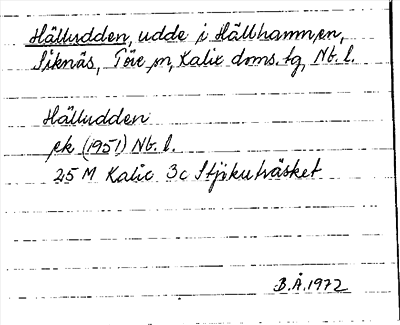 Hälludden, udde i Hällhamnen,
Siknäs, Töre sn, Kalix doms. tg, Nb. l.
Hälludden
ek (1951) Nb. l.
25 M Kalix 3c Stjikuträsket
B.Å. 1972